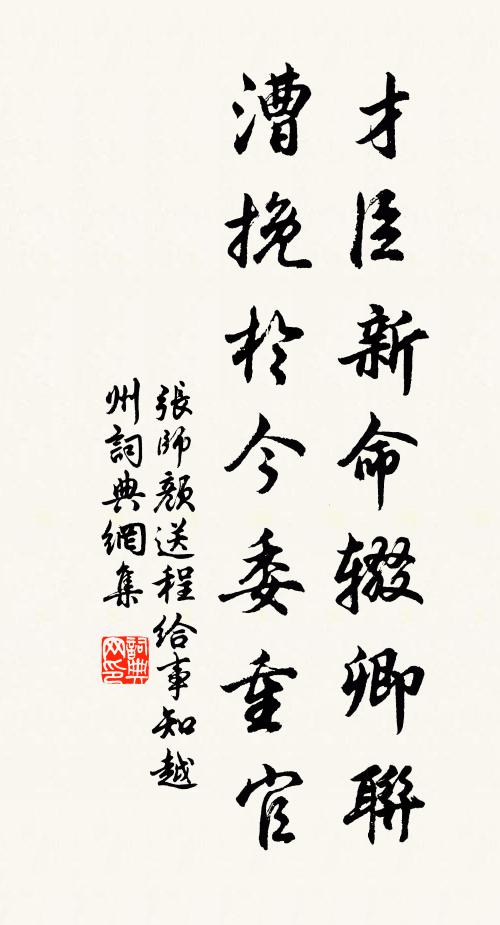 才臣新命辍卿聯
漕挽於今委重官
張師顏送程給事知越
州詞典網集
詞典
网印